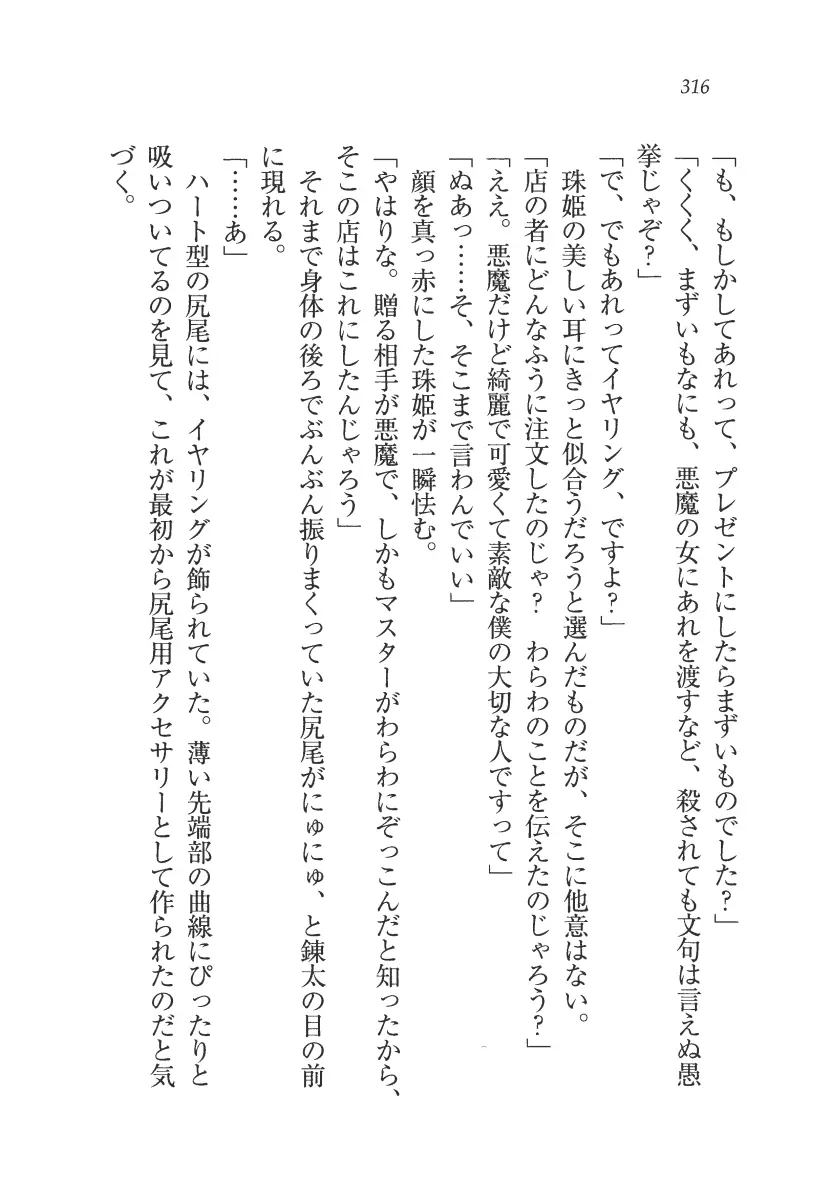 316
「も、もしかしてあれって、プレゼントにしたらまずいものでした？」
「くくく、まずいもなにも、悪魔の女にあれを渡すなど、殺されても文句は言えぬ愚
挙じゃぞ？」
「で、でもあれってイヤリング、ですよ？」
珠姫の美しい耳にきっと似合うだろうと選んだものだが、そこに他意はない。
「店の者にどんなふうに注文したのじゃ？　わらわのことを伝えたのじゃろう？」
「ええ。悪魔だけど綺麗で可愛くて素敵な僕の大切な人ですって」
「ぬあっ……そ、そこまで言わんでいい」
顔を真っ赤にした珠姫が一瞬怯む。
「やはりな。贈る相手が悪魔で、しかもマスターがわらわにぞっこんだと知ったから、
そこの店はこれにしたんじゃろう」
それまで身体の後ろでぶんぶん振りまくっていた尻尾がにゅにゅ、と錬太の目の前
に現れる。
「……あ」
ハート型の尻尾には、イヤリングが飾られていた。薄い先端部の曲線にぴったりと
吸いついてるのを見て、これが最初から尻尾用アクセサリーとして作られたのだと気
づく。